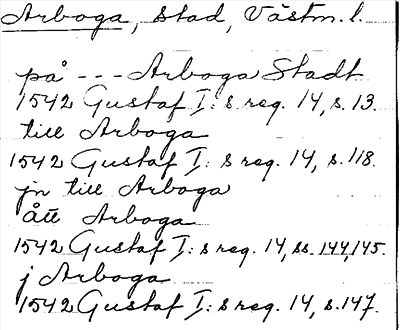 Arboga, Stad, Västm. l.
på - - - Arboga Stadt
1542 Gustaf I: s reg. 14, s. 13.
till Arboga
1542 Gustaf I: s reg. 14, s. 118.
jn till Arboga
ått Arboga
1542 Gustaf I: s reg. 14, ss. 144, 145.
j Arboga
1542 Gustaf I: s reg. 14, s. 147.